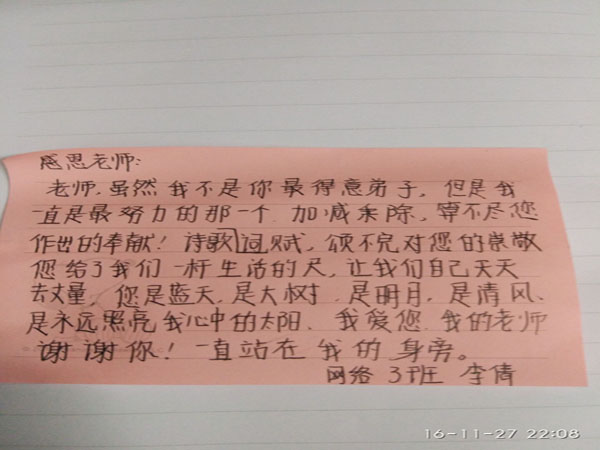 感恩老师:
老师,虽然我不是你最得意弟子,但是我
一直是最努力的那一个.加减乘除,算不尽您
作出的奉献!诗歌词赋,颂不完对您的崇敬
您给了我们一杆生活的尺,让我们自己天天
去丈量,您是蓝天,是大树,是明月,是清风、
是永远照亮我心中的太阳、我爱您.我的老师
谢谢你!一直站在我的身旁。
网络3班 李倩
16-11-27 22:08